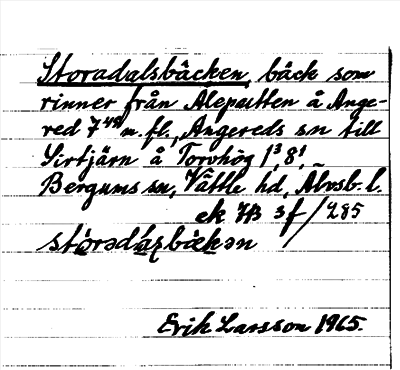 Storadalsbäcken, bäck som
rinner från Aleputten å Ange-
red 7⁴² m. fl., Angereds sn till
Sirtjärn å Torvhög 1³, 8¹,
Bergums sn, Vättle hd, Älvsb. l.
ek. 7B 3f/285
stóradálsbäckən
Erik Larsson 1965.